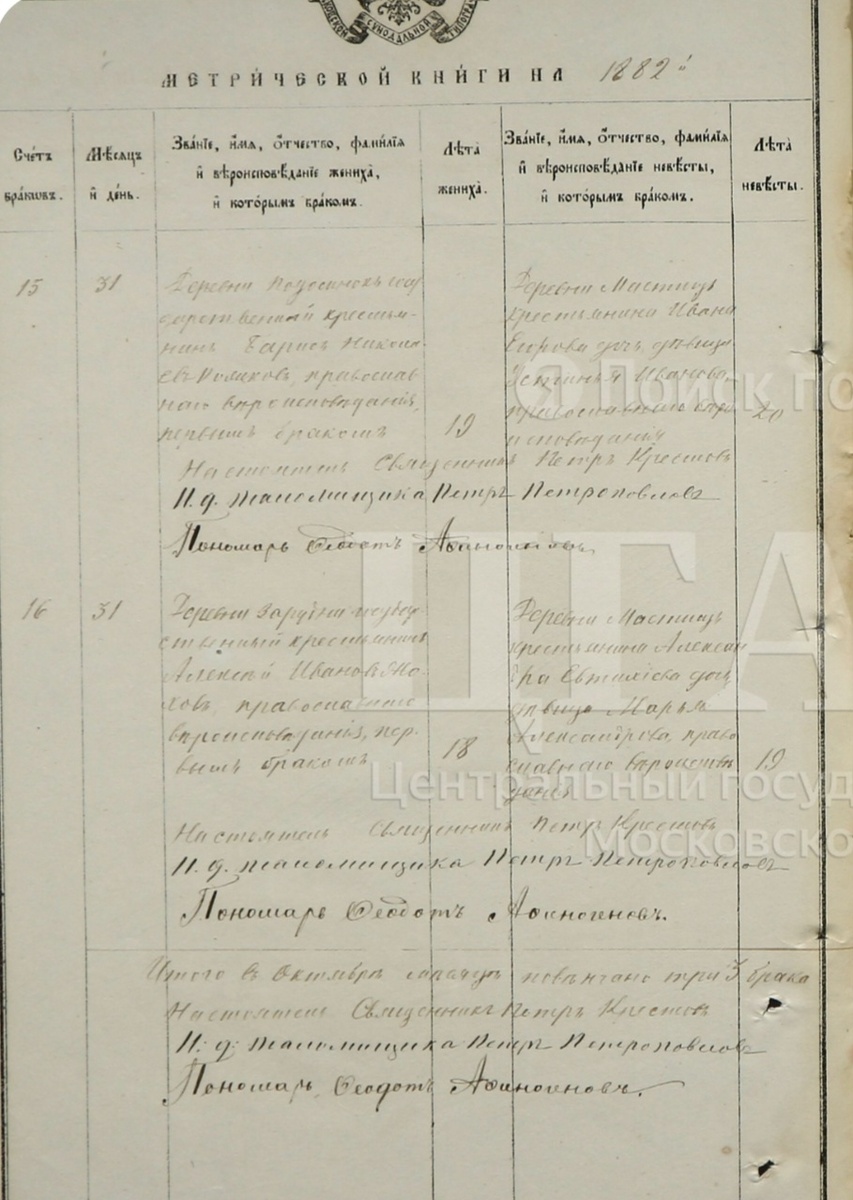 СѴНОДАЛЬНОЙ
МЕТРИ́ЧЕСКОЙ КНИ́ГИ НА 1882
Сче́тъ бра́кωвъ.
Мѣсѧцъ и҆ де́нь.
Зва́нїе, и҆́мѧ, ѻ҆́тчество, фами́лїѧ и҆ вѣроисповѣ́данїе жениха̀, и҆ кото́рымъ бра́комъ.
Лѣ́та жениха̀.
Зва́нїе, и҆́мѧ, ѻ҆́тчество, фами́лїѧ и҆ вѣроисповѣ́данїе невѣ́сты, и҆ кото́рымъ бра́комъ.
Лѣ́та невѣ́сты.
15
31
Деревни госу
дарственный крестья-
нинъ Борисъ Никола
евъ Поляковъ, православ
наго вѣроисповѣданія,
первымъ бракомъ
19
Деревни Мастищъ
крестьянина Ивана
Егорова дочь дѣвица
Устинья Иванова,
православнаго вѣро
исповѣданія
20
Настоятель Священникъ Петръ Крестовъ
И. д. Псаломщика Петръ Петропавловъ
Пономарь Ѳеодотъ Аѳиногеновъ
16
31
Деревни
ственный крестьянинъ
Алексѣй Ивановъ
ховъ, православнаго
вѣроисповѣданія, пер
вымъ бракомъ
18
Деревни Мастищъ
крестьянина Алексан
дра Евтихіева дочь
дѣвица Марья
Александрова, право
славнаго вѣроисповѣ
данія
19
Настоятель Священникъ Петръ Крестовъ
И. д. Псаломщика Петръ Петропавловъ
Пономарь Ѳеодотъ Аѳиногеновъ.
Итого въ Октябрѣ мѣсяцѣ повѣнчано три 3 брака
Настоятель Священникъ Петръ Крестовъ
И. д. Псаломщика Петръ Петропавловъ
Пономарь Ѳеодотъ Аѳиногеновъ.
Поиск по
ЦГА
Центральный госуд
Московско